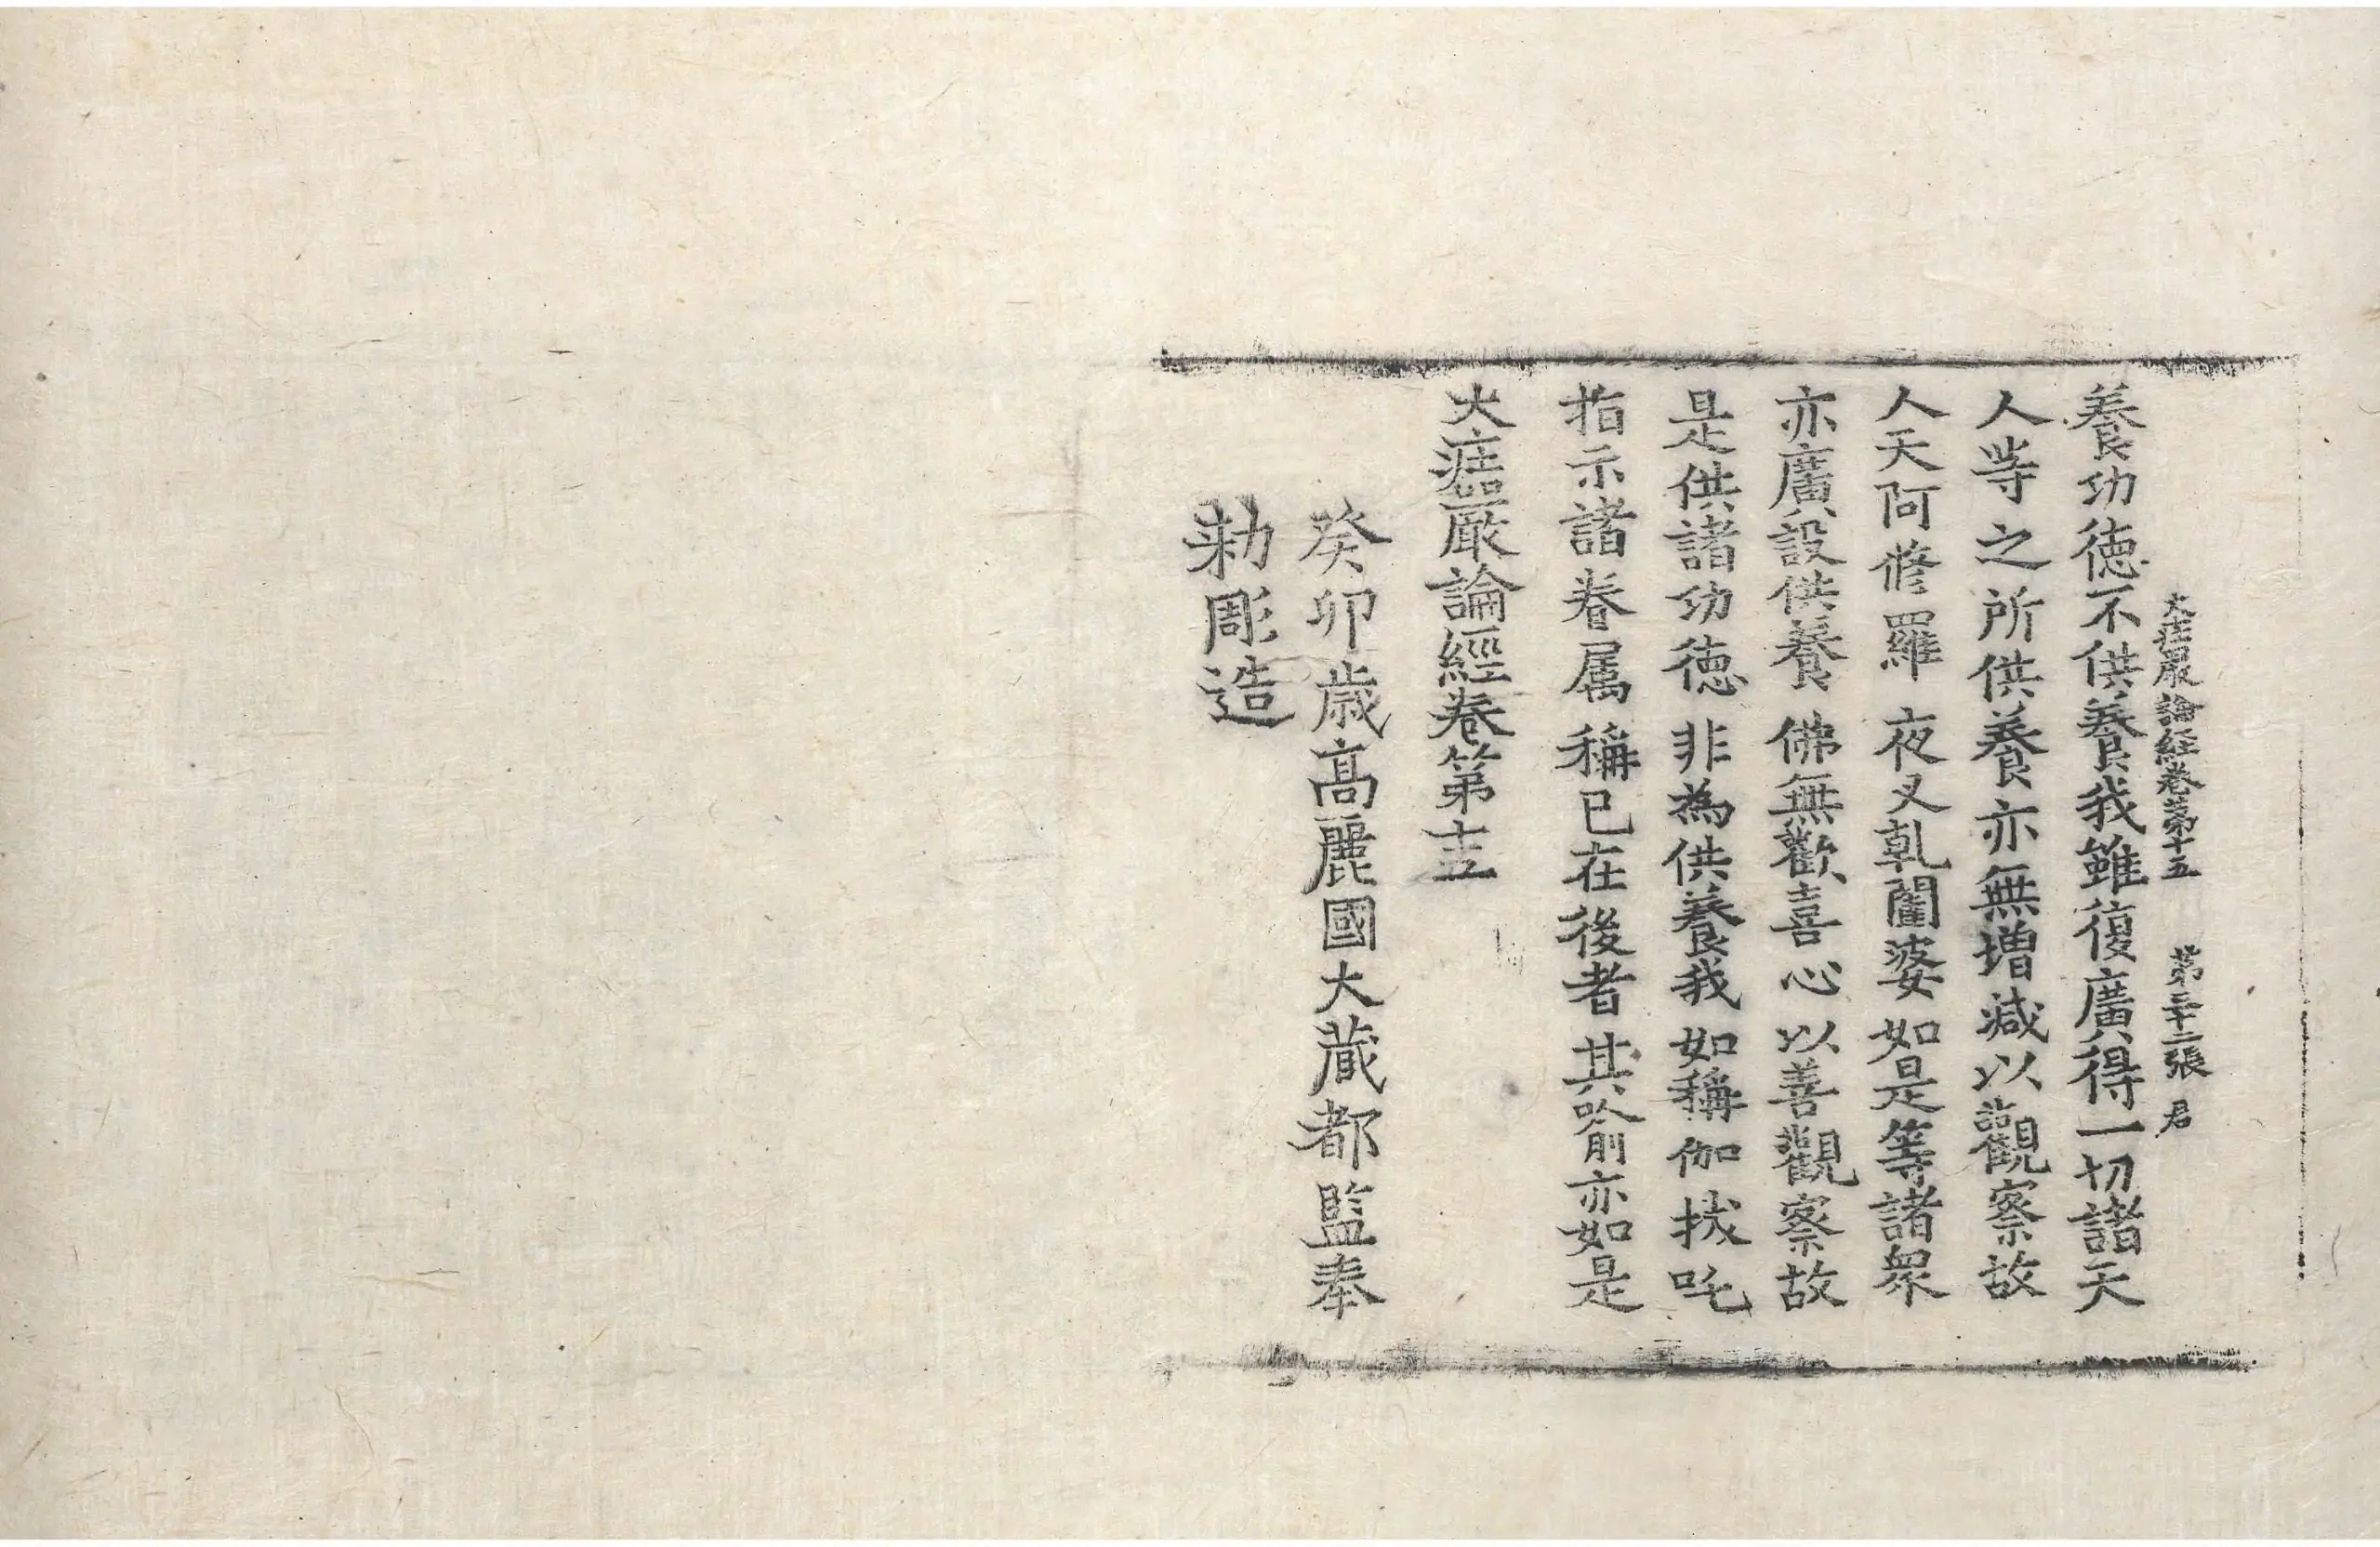 大莊嚴論経卷第十五 第三十二張 君
養功德不供養我雖復廣得一切諸天
人䓁之所供養亦無増減以觀察故
人天阿脩羅夜叉乹闥婆如是等諸衆
亦廣設供養佛無歡喜心以善觀察故
是供諸功德非為供養我如稱伽拔吒
指示諸眷属稱已在後者其喻亦如是
大莊嚴論經卷第十五
癸卯歲高麗國大藏都監奉
勅彫造